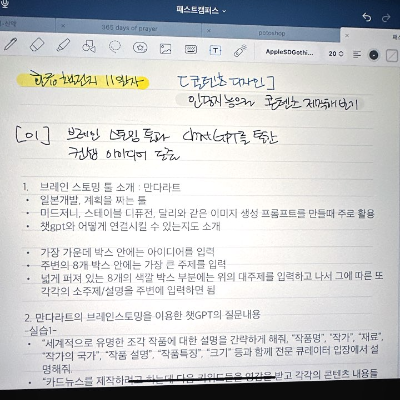 패스트캠퍼스
365 days of prayer
potoshop
AppleSDGothi...
20
11일차
[콘텐츠 디자인]
콘텐츠 제작해보기
[01] 브레인 스토밍 툴과 chatGPT를 통한
컨셉 아이디어 도출
1. 브레인 스토밍 툴 소개 : 만다라트
• 일본개발, 계획을 짜는 툴
• 미드저니, 스테이블 디퓨전, 달리와 같은 이미지 생성 프롬프트를 만들때 주로 활용
• 챗gpt와 어떻게 연결시킬 수 있는지도 소개
• 가장 가운데 박스 안에는 아이디어를 입력
• 주변의 8개 박스 안에는 가장 큰 주제를 입력
• 넓게 퍼져 있는 8개의 색깔 박스 부분에는 위의 대주제를 입력하고 나서 그에 따른 또
각각의 소주제/설명을 주변에 입력하면 됨
2. 만다라트의 브레인스토밍을 이용한 챗GPT의 질문내용
-실습1-
• “세계적으로 유명한 조각 작품에 대한 설명을 간략하게 해줘, "작품명", "작가", "재료",
"작가의 국가", "작품 설명", "작품특징", "크기" 등과 함께 전문 큐레이터 입장에서 설
명해줘.
• “카드뉴스를 제작하려고 하는데 다음 키워드들을 영감을 받고 각각의 콘텐츠 내용들